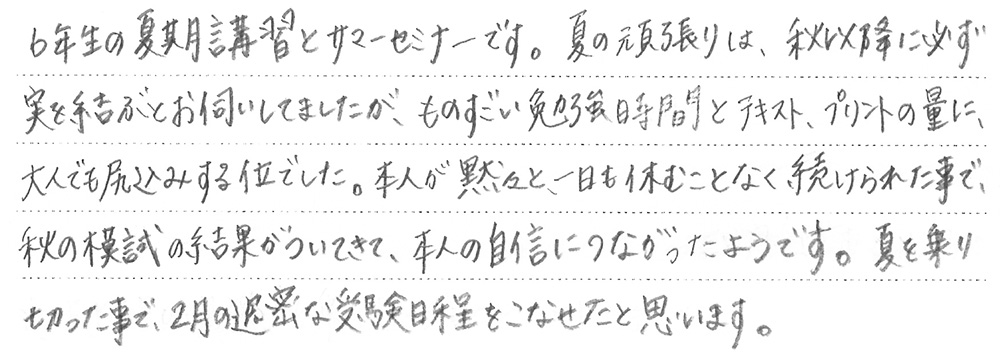 6年生の夏期講習とサマーセミナーです。夏の頑張りは、秋以降に必ず
実を結ぶとお伺いしてましたが、ものすごい勉強時間とテキスト、プリントの量に、
大人でも尻込みする位でした。本人が黙々と、一日も休むことなく続けられた事で、
秋の模試の結果がついてきて、本人の自信につながったようです。夏を乗り
切った事で、2月の過密な受験日程をこなせたと思います。